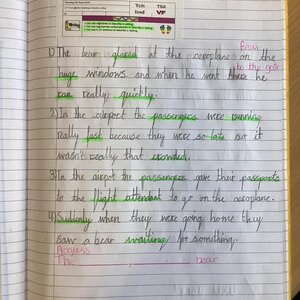 Tch TSA
Ind VF
from
1) The bear glared at the aeroplane on the
to the gate
huge windows and when he went there he
ran really quickly.
2) In the airport the passengers were running
really fast because they were so late but it
wasn't really that crowded.
3) In the airport the passengers gave their passports
to the flight attendant to go on the aeroplane.
4) Suddenly when they were going home they
saw a bear waiting for something.
Progress
The , bear